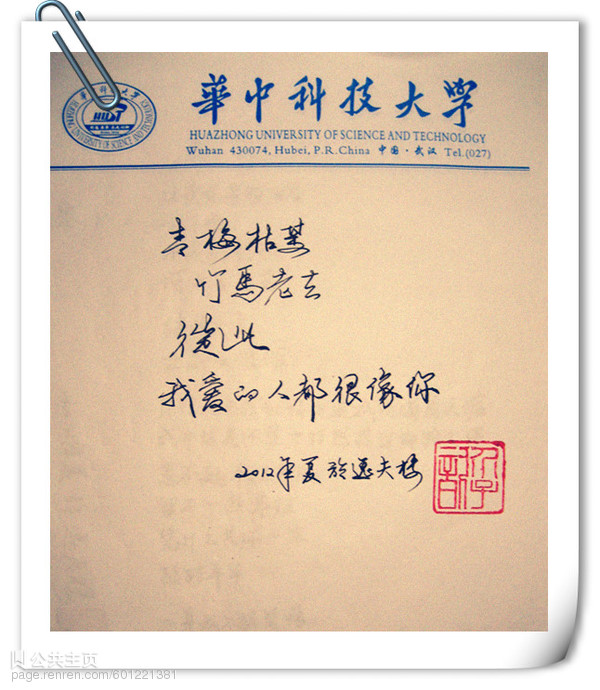 華中科技大学
HUAZHONG UNIVERSITY OF SCIENCE AND TECHNOLOGY
Wuhan 430074, Hubei, P.R.China 中国·武汉 Tel.(027)
HUST
青梅枯萎
竹馬老去
從此
我爱的人都很像你
2012年夏於逸夫楼
公共主页
page.renren.com/601221381